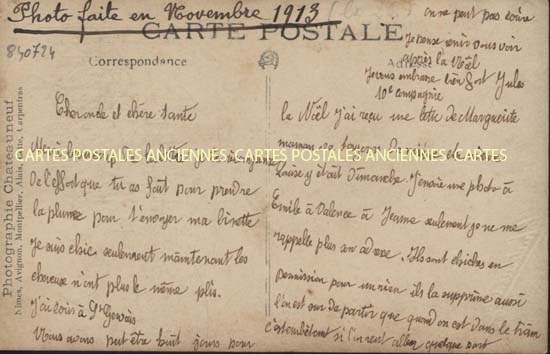 Photo faite en Novembre 1913
840724
CARTE POSTALE
Correspondance
Adresse
on ne peut pas écrire
Je pense venir vous voir
après la Noël
Je vous embrasse bien fort Jules
10e compagnie
Photographie Chateauneuf
Nîmes, Avignon, Montpellier, Alais, Carpentras
oncle et chère tante
CARTES POSTALES ANCIENNES CARTES POSTALES ANCIENNES CARTES POSTALES ANCIENNES
De l'effort que tu as fait pour prendre
la plume pour t'envoyer ma binette
Je suis chic seulement maintenant les
cheveux n'ont plus le même pli.
J'ai vois à St Gervais
Nous avons peut être huit jours pour
la Noël j'ai reçu une lettre de Marguerite
maman
y était Dimanche. J'envoie une photo à
Emile à Valence à Jeanne seulement je ne me
rappelle plus son adresse. Ils sont chiches en
permission pour un rien ils la supprime aussi
l'on est sur de partir que quand on est dans le train
c'est embêtant si l'on veut aller quelque part